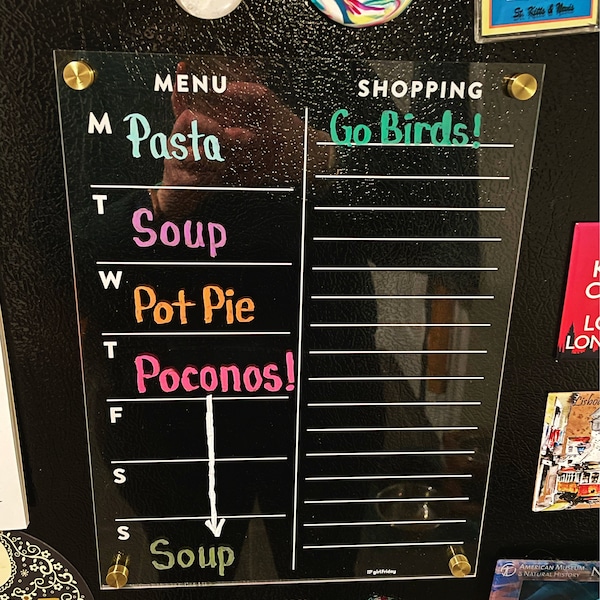 St. Kitts & Nevis
MENU
SHOPPING
M Pasta
Go Birds!
T Soup
W Pot Pie
T Poconos!
F
S
S Soup
girlfriday
LONDON
Lisboa
AMERICAN MUSEUM
& NATURAL HISTORY